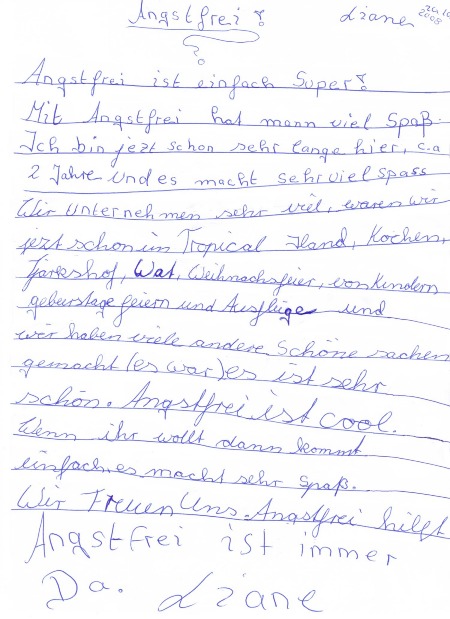 Angstfrei? Liane 24.10 2008
?
Angstfrei ist einfach Super!
Mit Angstfrei hat mann viel Spaß.
Ich bin jezt schon sehr lange hier, c.a
2 Jahre und es macht sehr viel spass
Wir unternehmen sehr viel, waren wir
jezt schon im Tropical Iland, Kochen,
Watt, Weihnachsfeier, von Kindern
geburstage feiern und Ausflüge und
wir haben viele andere Schöne sachen
gemacht (es war) es ist sehr
schön. Angstfrei ist cool.
Wenn ihr wollt dann kommt
einfach es macht sehr spaß.
Wir Freuen Uns. Angstfrei hilft
Angstfrei ist immer
Da. Liane